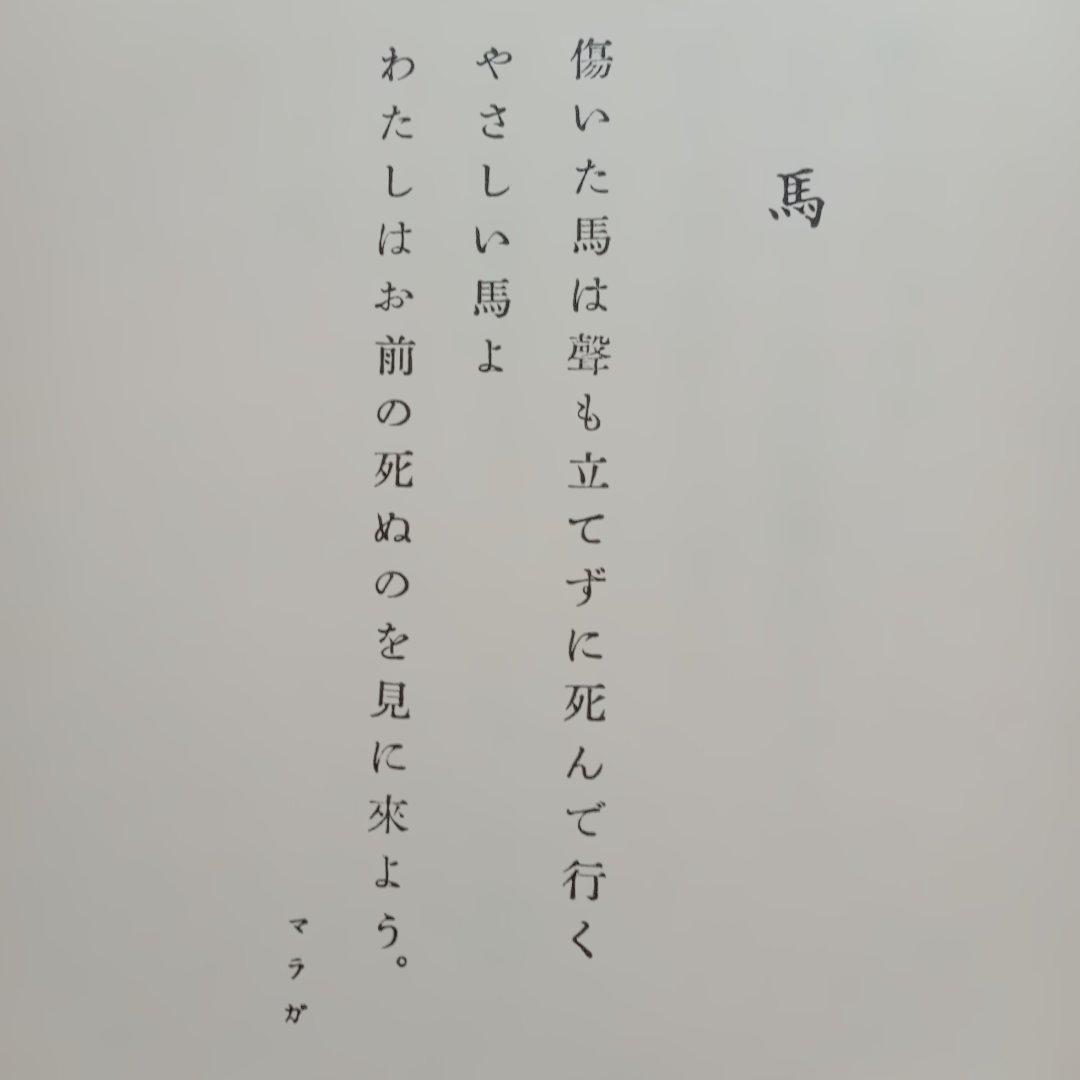 馬
傷いた馬は聲も立てずに死んで行く
やさしい馬よ
わたしはお前の死ぬのを見に來よう。
マラガ